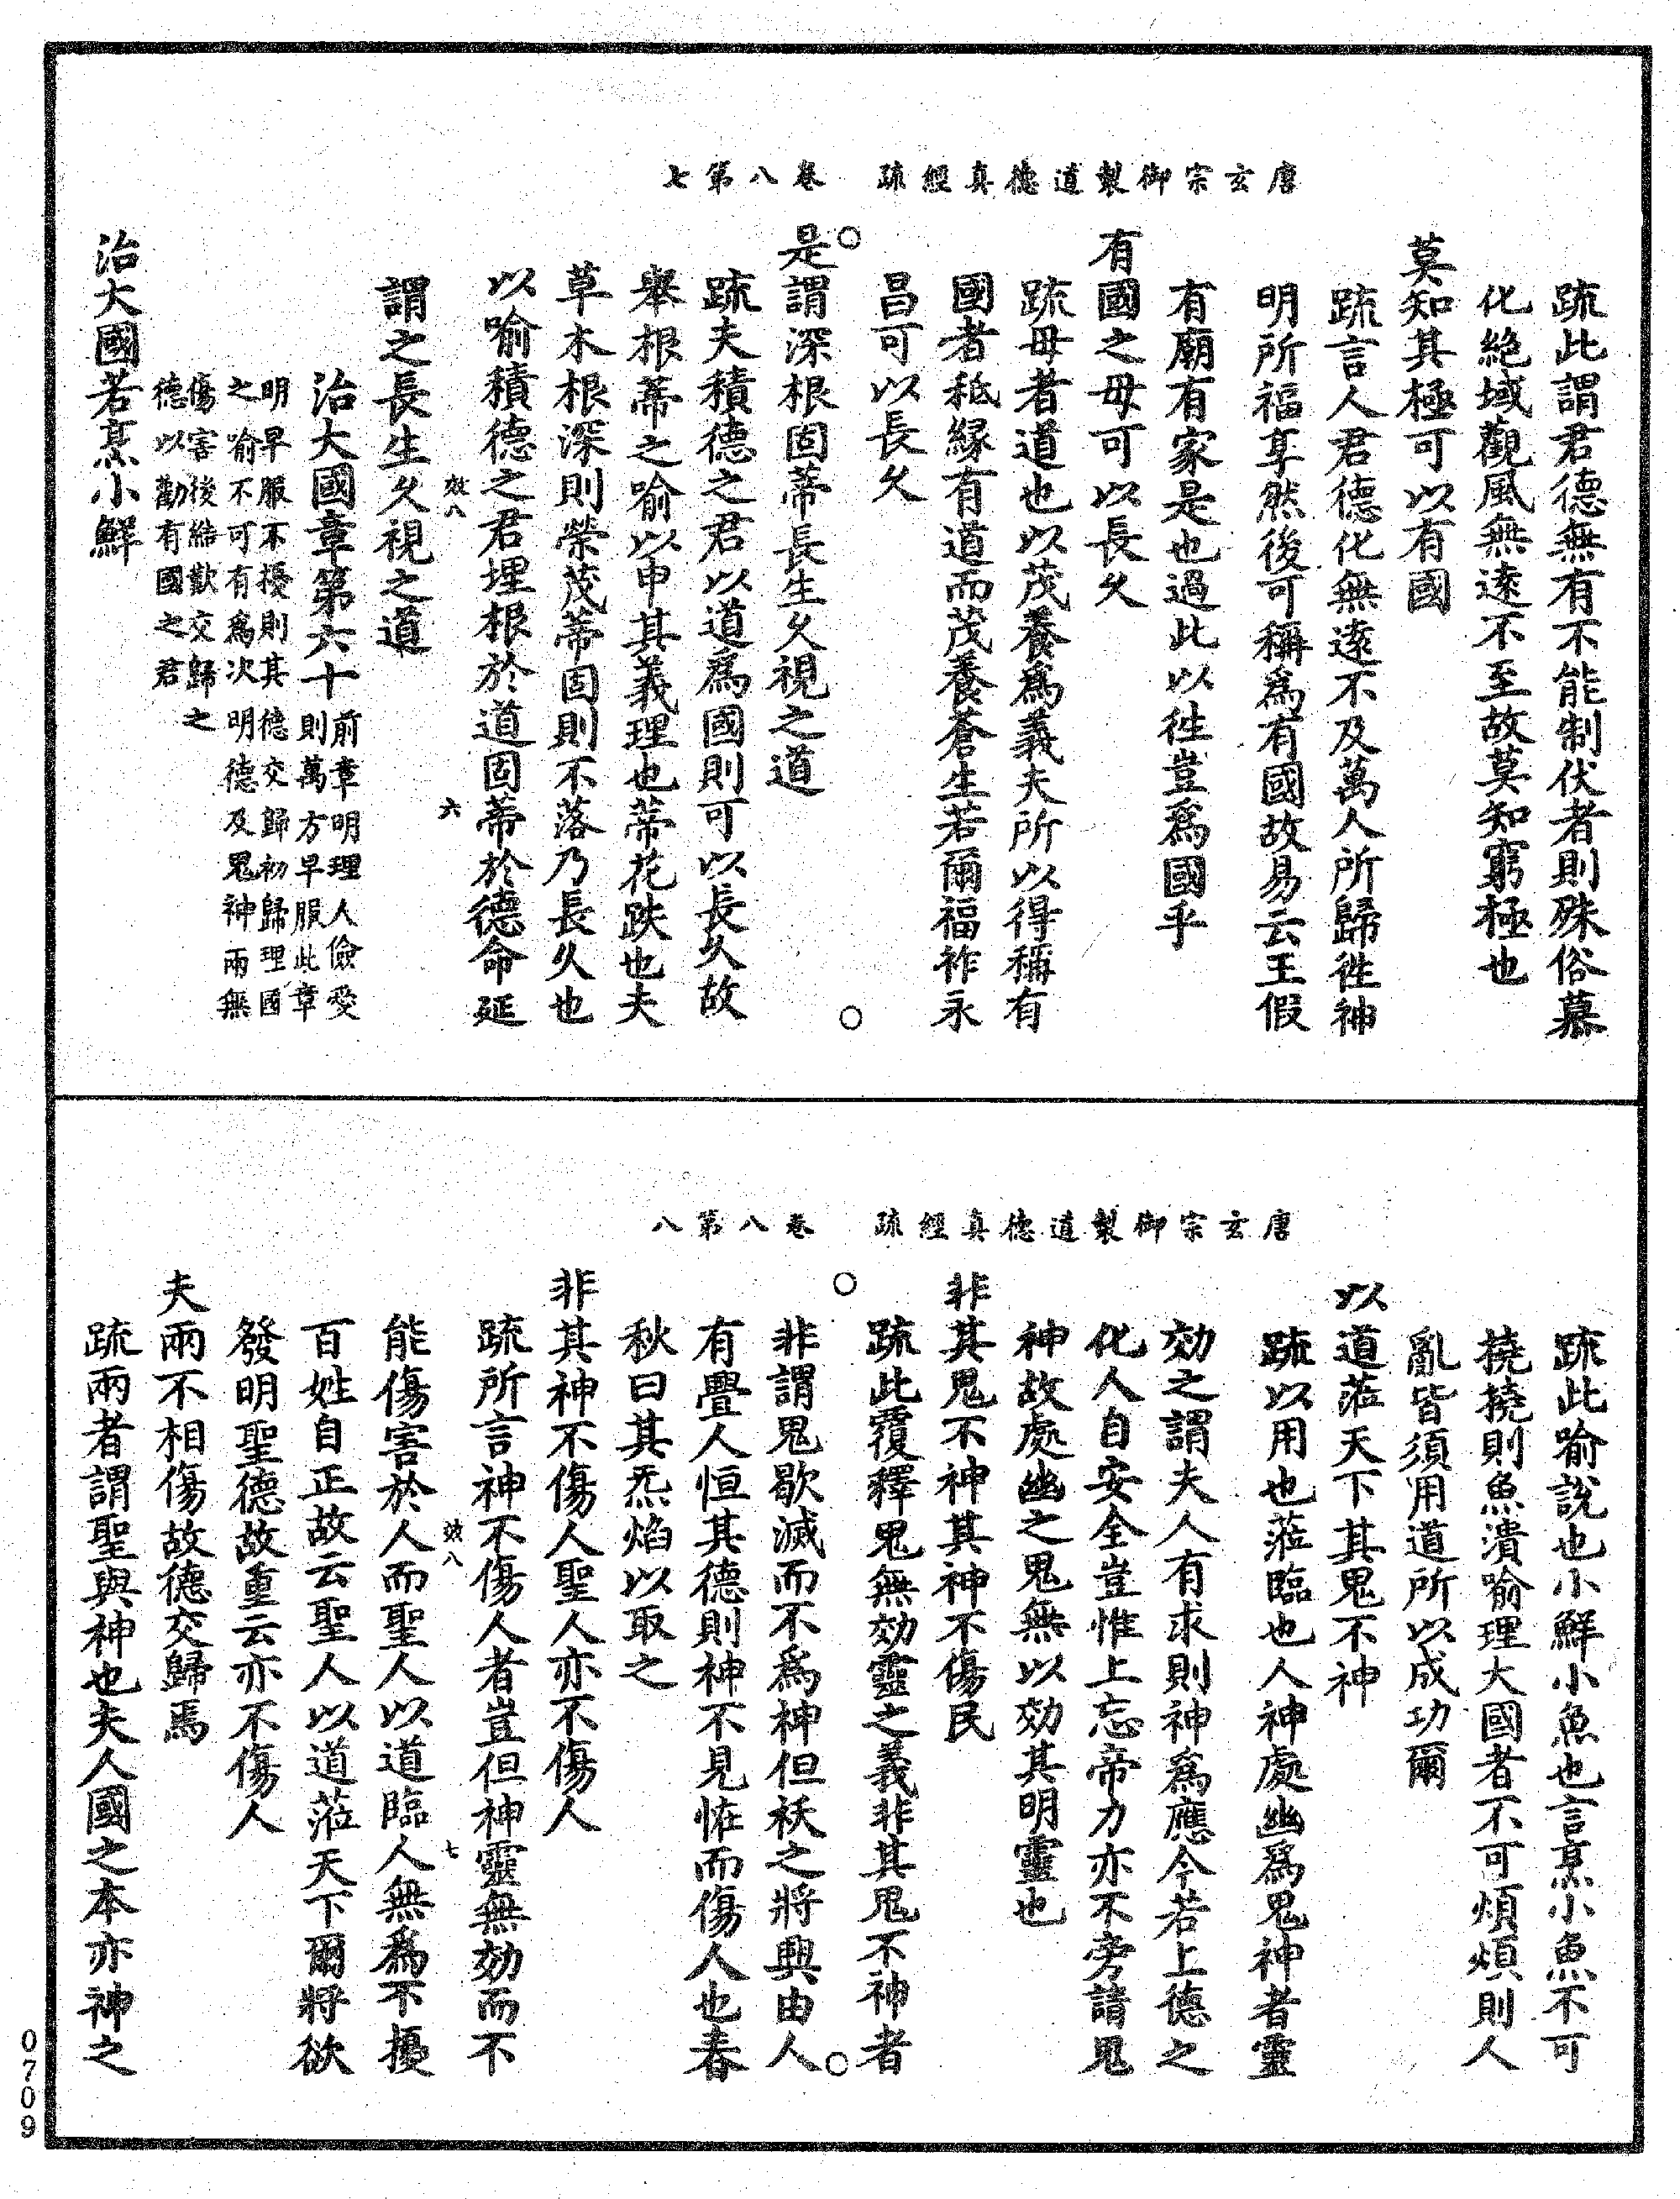 唐玄宗御製道德真經疏　卷八第七
疏此謂君德無有不能制伏者則殊俗慕
化絶域觀風無遠不至故莫知窮極也
莫知其極可以有國
疏言人君德化無遠不及萬人所歸徃神
明所福享然後可稱爲有國故易云王假
有廟有家是也過此以徃豈爲國乎
有國之母可以長久
疏母者道也以茂養爲義夫所以得稱有
國者秪緣有道而茂養蒼生若爾福祚永
昌可以長久
是謂深根固蔕長生久視之道
疏夫積德之君以道爲國則可以長久故
舉根蔕之喻以申其義理也蔕花趺也夫
草木根深則榮茂蔕固則不落乃長久也
以喻積德之君埋根於道固蔕於德命延
效八　六
謂之長生久視之道
治大國章第六十
前章明理人儉愛
則萬方早服此章
明早服不擾則其德交歸初歸理國
之喻不可有爲次明德及鬼神兩無
傷害後結歎交歸之
德以勸有國之君
治大國若烹小鮮
唐玄宗御製道德真經疏　卷八第八
疏此喻說也小鮮小魚也言烹小魚不可
撓撓則魚潰喻理大國者不可煩煩則人
亂皆須用道所以成功爾
以道蒞天下其鬼不神
疏以用也蒞臨也人神處幽爲鬼神者靈
効之謂夫人有求則神爲應今若上德之
化人自安全豈惟上忘帝力亦不旁請鬼
神故處幽之鬼無以効其明靈也
非其鬼不神其神不傷民
疏此覆釋鬼無効靈之義非其鬼不神者
非謂鬼歇滅而不爲神但祅之將興由人
有舋人恒其德則神不見恠而傷人也春
秋曰其炁焰以取之
非其神不傷人聖人亦不傷人
疏所言神不傷人者豈但神靈無効而不
效八　七
能傷害於人而聖人以道臨人無爲不擾
百姓自正故云聖人以道蒞天下爾將欲
發明聖德故重云亦不傷人
夫兩不相傷故德交歸焉
疏兩者謂聖與神也夫人國之本亦神之
0709